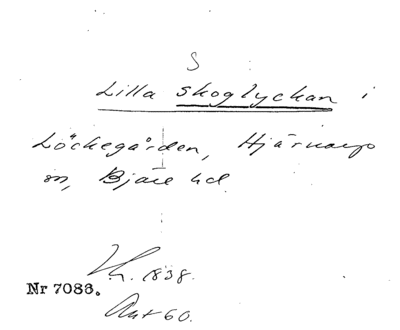 S
Lilla skoglyckan i
Löckegården, Hjärnarps
sn, Bjäre hd
H. 1838.
Nr 7083.
Akt 60.